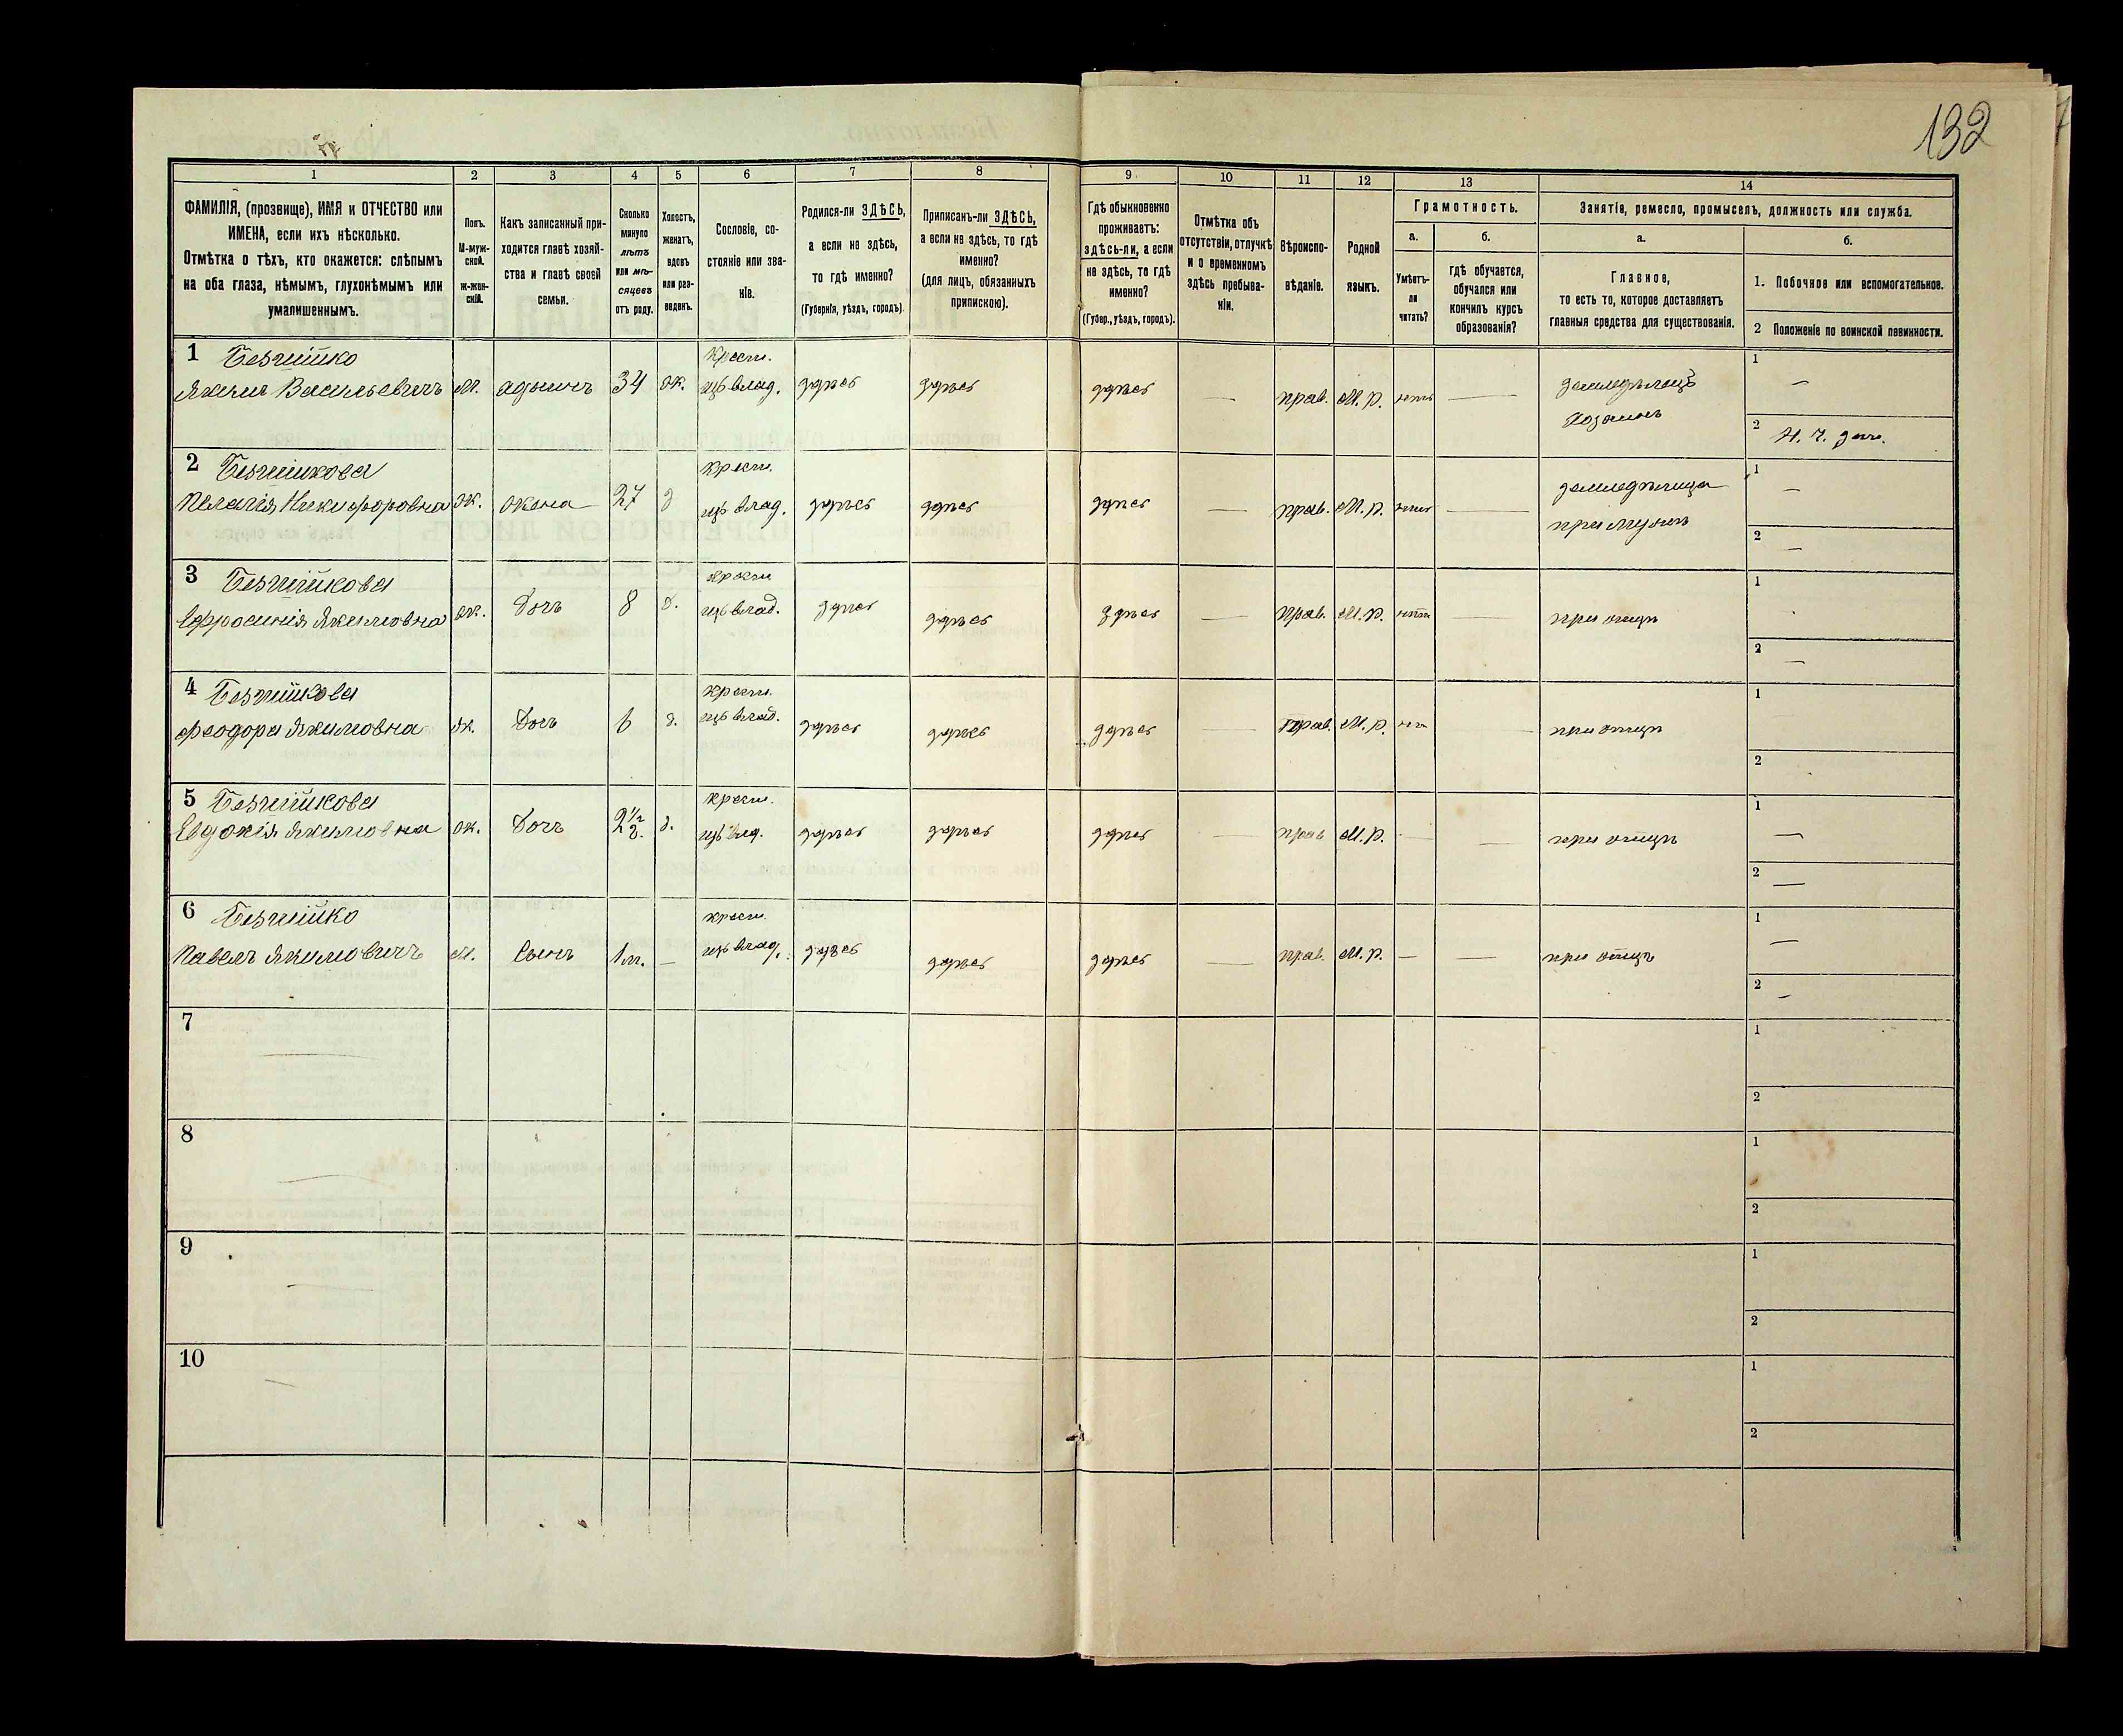 132
1 2 3 4 5 6 7 8 9 10 11 12 13 14
ФАМИЛІЯ, (прозвище), ИМЯ и ОТЧЕСТВО или
ИМЕНА, если ихъ нѣсколько.
Отмѣтка о тѣхъ, кто окажется: слѣпымъ
на оба глаза, нѣмымъ, глухонѣмымъ или
умалишеннымъ.
Полъ.
М-муж-
ской.
ж-жен-
скій.
Какъ записанный при-
ходится главѣ хозяй-
ства и главѣ своей
семьи.
Сколько
минуло
лѣтъ
или мѣ-
сяцевъ
отъ роду.
Холостъ,
женатъ,
вдовъ
или раз-
веденъ.
Сословіе, со-
стояніе или зва-
ніе.
Родился-ли ЗДѢСЬ,
а если не здѣсь,
то гдѣ именно?
(Губернія, уѣздъ, городъ).
Приписанъ-ли ЗДѢСЬ,
а если не здѣсь, то гдѣ
именно?
(для лицъ, обязанныхъ
припискою).
Гдѣ обыкновенно
проживаетъ:
здѣсь-ли, а если
не здѣсь, то гдѣ
именно?
(Губер., уѣздъ, городъ).
Отмѣтка объ
отсутствіи, отлучкѣ
и о временномъ
здѣсь пребыва-
ніи.
Вѣроиспо-
вѣданіе.
Родной
языкъ.
Грамотность.
а.
Умѣетъ-
ли
читать?
б.
гдѣ обучается,
обучался или
кончилъ курсъ
образованія?
Занятіе, ремесло, промыселъ, должность или служба.
а.
Главное,
то есть то, которое доставляетъ
главныя средства для существованія.
б.
1. Побочное или вспомогательное.
2 Положеніе по воинской повинности.
1 крест. 1
Якимъ Васильевичъ М. 34 ж. здѣсь здѣсь здѣсь — прав. М. р. нѣтъ — земледѣлецъ —
хозяинъ 2
2 крест. 1
Пелагія Никифоровна ж. жена 27 здѣсь здѣсь здѣсь — прав. М. р. нѣтъ — земледѣлица —
при мужѣ 2 —
3 крест. 1
Ефросинія Якимовна ж. дочь 8 д. здѣсь здѣсь здѣсь — прав. М. р. нѣтъ — при отцѣ
2 —
4 крест. 1
Феодора Якимовна ж. дочь 6 д. здѣсь здѣсь здѣсь — прав. М. р. нѣтъ — при отцѣ
2
5 крест. 1
Евдокія Якимовна ж. дочь д. здѣсь здѣсь здѣсь — прав. М. р. — — при отцѣ —
2 —
6 крест. 1
Павелъ Якимовичъ М. сынъ 1 м. — здѣсь здѣсь здѣсь — прав. М. р. — — при отцѣ —
2 —
7 1
2
8 1
2
9 1
2
10 1
2